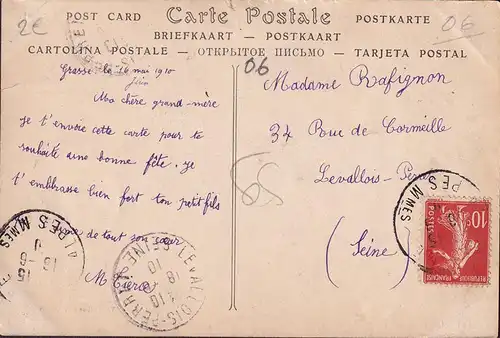 2€
POST CARD Carte Postale POSTKARTE
06
BRIEFKAART — POSTKAART
CARTOLINA POSTALE — ОТКРЫТОЕ ПИСЬМО — TARJETA POSTAL
06
Grasse, le 16 mai 1910
Juin
Ma chère grand-mère
je t'envoie cette carte pour te
souhaité une bonne fête, je
t'embrasse bien fort ton petit fils
de tout son cœur
M
Madame Rafignon
34 Rue de Cormeille
Levallois-Perret
(Seine)
LEVALLOIS-PERRET
SEINE
ALPES MMES
15 -6
ALPES MMES
10c
POSTES
REPUBLIQUE
FRANÇAISE